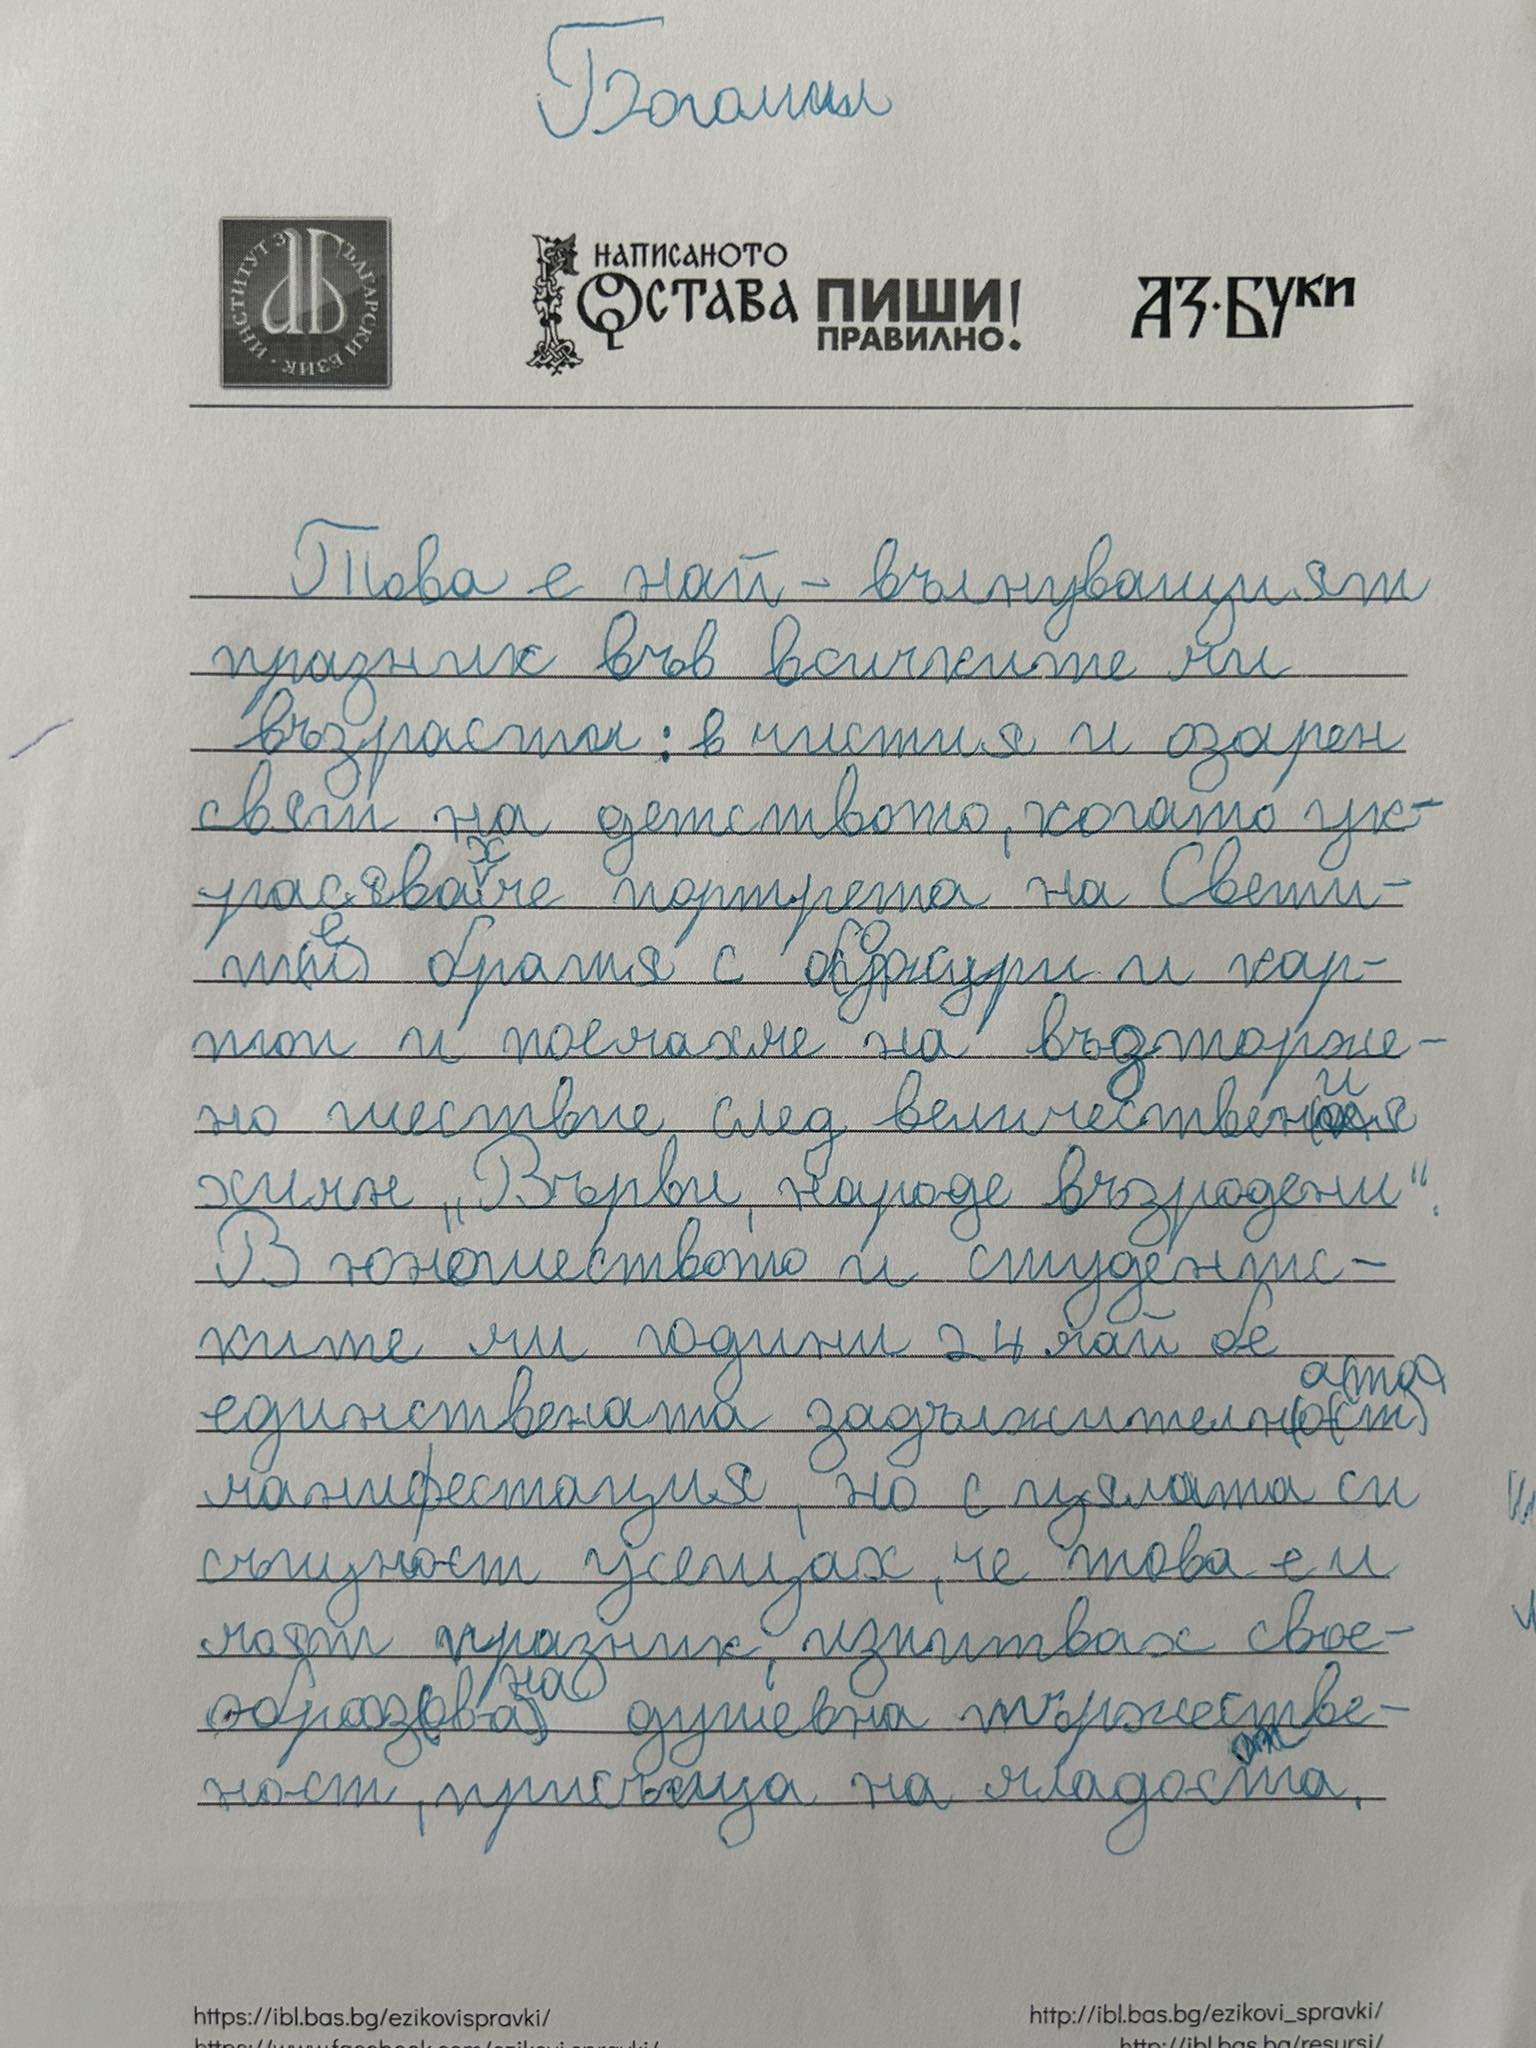 Богомил
ИНСТИТУТ ЗА БЪЛГАРСКИ ЕЗИК
НАПИСАНОТО
ОСТАВА ПИШИ
ПРАВИЛНО!
АЗ·БУКИ
Това е най-вълнуващият
празник във всичките ми
възрасти: в чистия и озарен
свят на детството, когато ук-
расявахме портрета на Свети-
те братя с божури и кар-
тон и поемахме на възторже-
но шествие след величествения
химн „Върви, народе възродени“.
В юношеството и студентс-
ките ми години 24 май бе
единствената задължителна
манифестация, но с цялата си
същност усещах, че това е и
моят празник, изпитвах свое-
образна душевна тържестве-
ност, присъща на младостта.
https://ibl.bas.bg/ezikovispravki/
http://ibl.bas.bg/ezikovi_spravki/
https://www.facebook.com/ezikovi.spravki/
http://ibl.bas.bg/resursi/